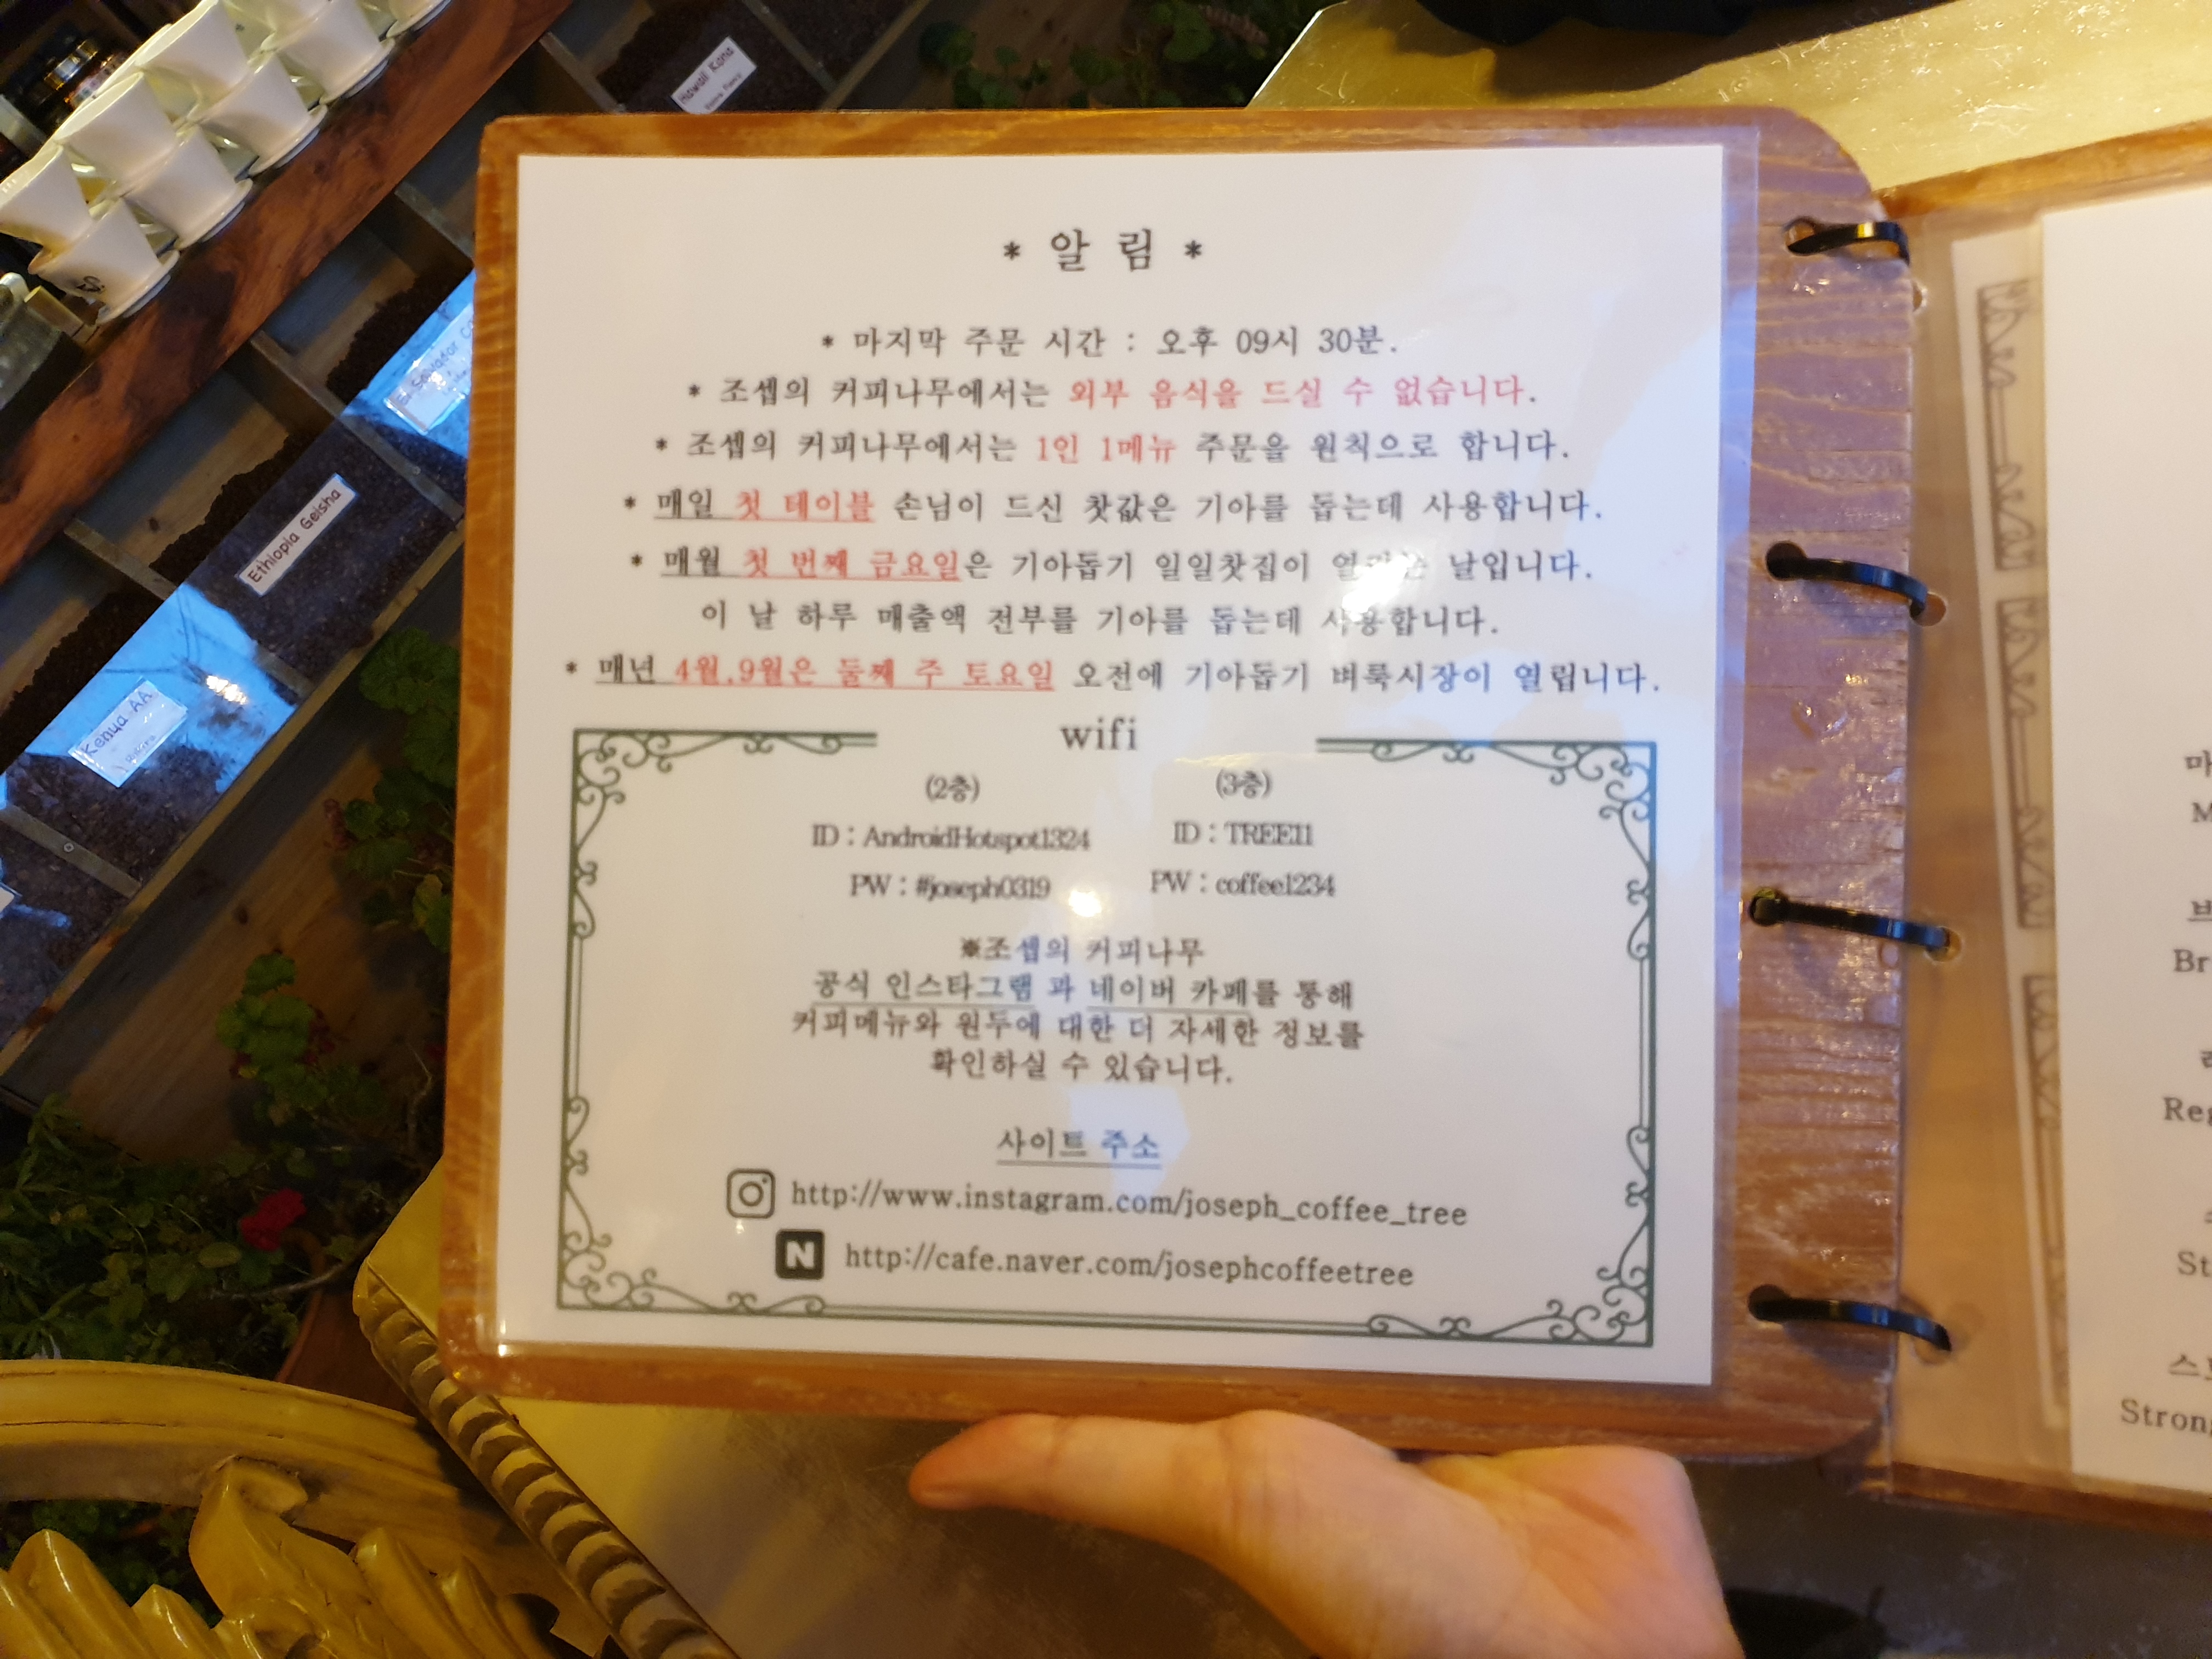 Hawaii Kona
Ethiopia Geisha
Kenya AA
* 알 림 *
* 마지막 주문 시간 : 오후 09시 30분.
* 조셉의 커피나무에서는 외부 음식을 드실 수 없습니다.
* 조셉의 커피나무에서는 1인 1메뉴 주문을 원칙으로 합니다.
* 매일 첫 테이블 손님이 드신 찻값은 기아를 돕는데 사용합니다.
* 매월 첫 번째 금요일은 기아돕기 일일찻집이 열리는 날입니다.
이 날 하루 매출액 전부를 기아를 돕는데 사용합니다.
* 매년 4월,9월은 둘째 주 토요일 오전에 기아돕기 벼룩시장이 열립니다.
wifi
(2층) (3층)
ID : AndroidHotspot1324 ID : TREE11
PW : #joseph0319 PW : coffee1234
※조셉의 커피나무
공식 인스타그램 과 네이버 카페를 통해
커피메뉴와 원두에 대한 더 자세한 정보를
확인하실 수 있습니다.
사이트 주소
http://www.instagram.com/joseph_coffee_tree
N http://cafe.naver.com/josephcoffeetree
마
M
Br
Reg
St
스트
Strong